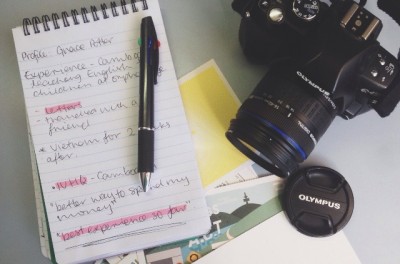 Profile: Grace Potter
Experience - Cambodia
teaching English
children at orphanage
- travelled with a
friend
* Vietnam for 2 weeks
after.
- Cambodia
"better way to spend my
money"
"best experience so far"
OLYMPUS
OLYMPUS